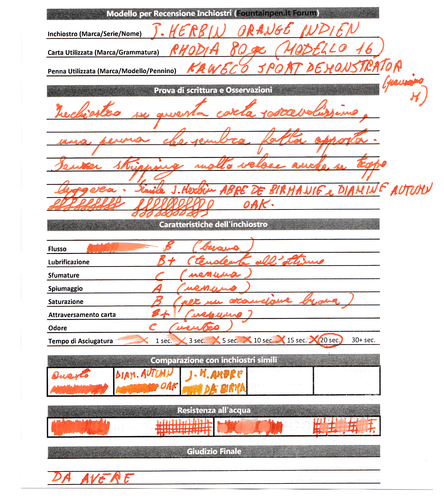 Modello per Recensione Inchiostri (Fountainpen.it Forum)
Inchiostro (Marca/Serie/Nome) J. HERBIN ORANGE INDIEN
Carta Utilizzata (Marca/Grammatura) RHODIA 80 gr (MODELLO 16)
Penna Utilizzata (Marca/Modello/Pennino) KAWECO SPORT DEMONSTRATOR
M)
Prova di scrittura e Osservazioni
Inchiostro su questa carta
una penna che sembra fatta apposta.
skipping molto veloce anche se troppo
leggera. Simile J. Herbin AMBRE DE BIRMANIE e DIAMINE AUTUMN
OAK.
Caratteristiche dell'inchiostro
Flusso B (buono)
Lubrificazione B+ (tendente all'ottimo
Sfumature C (nessuna)
Spiumaggio A (nessuno)
Saturazione B (per un arancione buona)
Attraversamento carta B+ (nessuno)
Odore C (neutro)
Tempo di Asciugatura 1 sec. 3 sec. 5 sec. 10 sec. 15 sec. 20 sec. 30+ sec.
Comparazione con inchiostri simili
Questo DIAM. AUTUMN OAK J. H. AMBRE DE BIRMA
Resistenza all'acqua
Giudizio Finale
DA AVERE